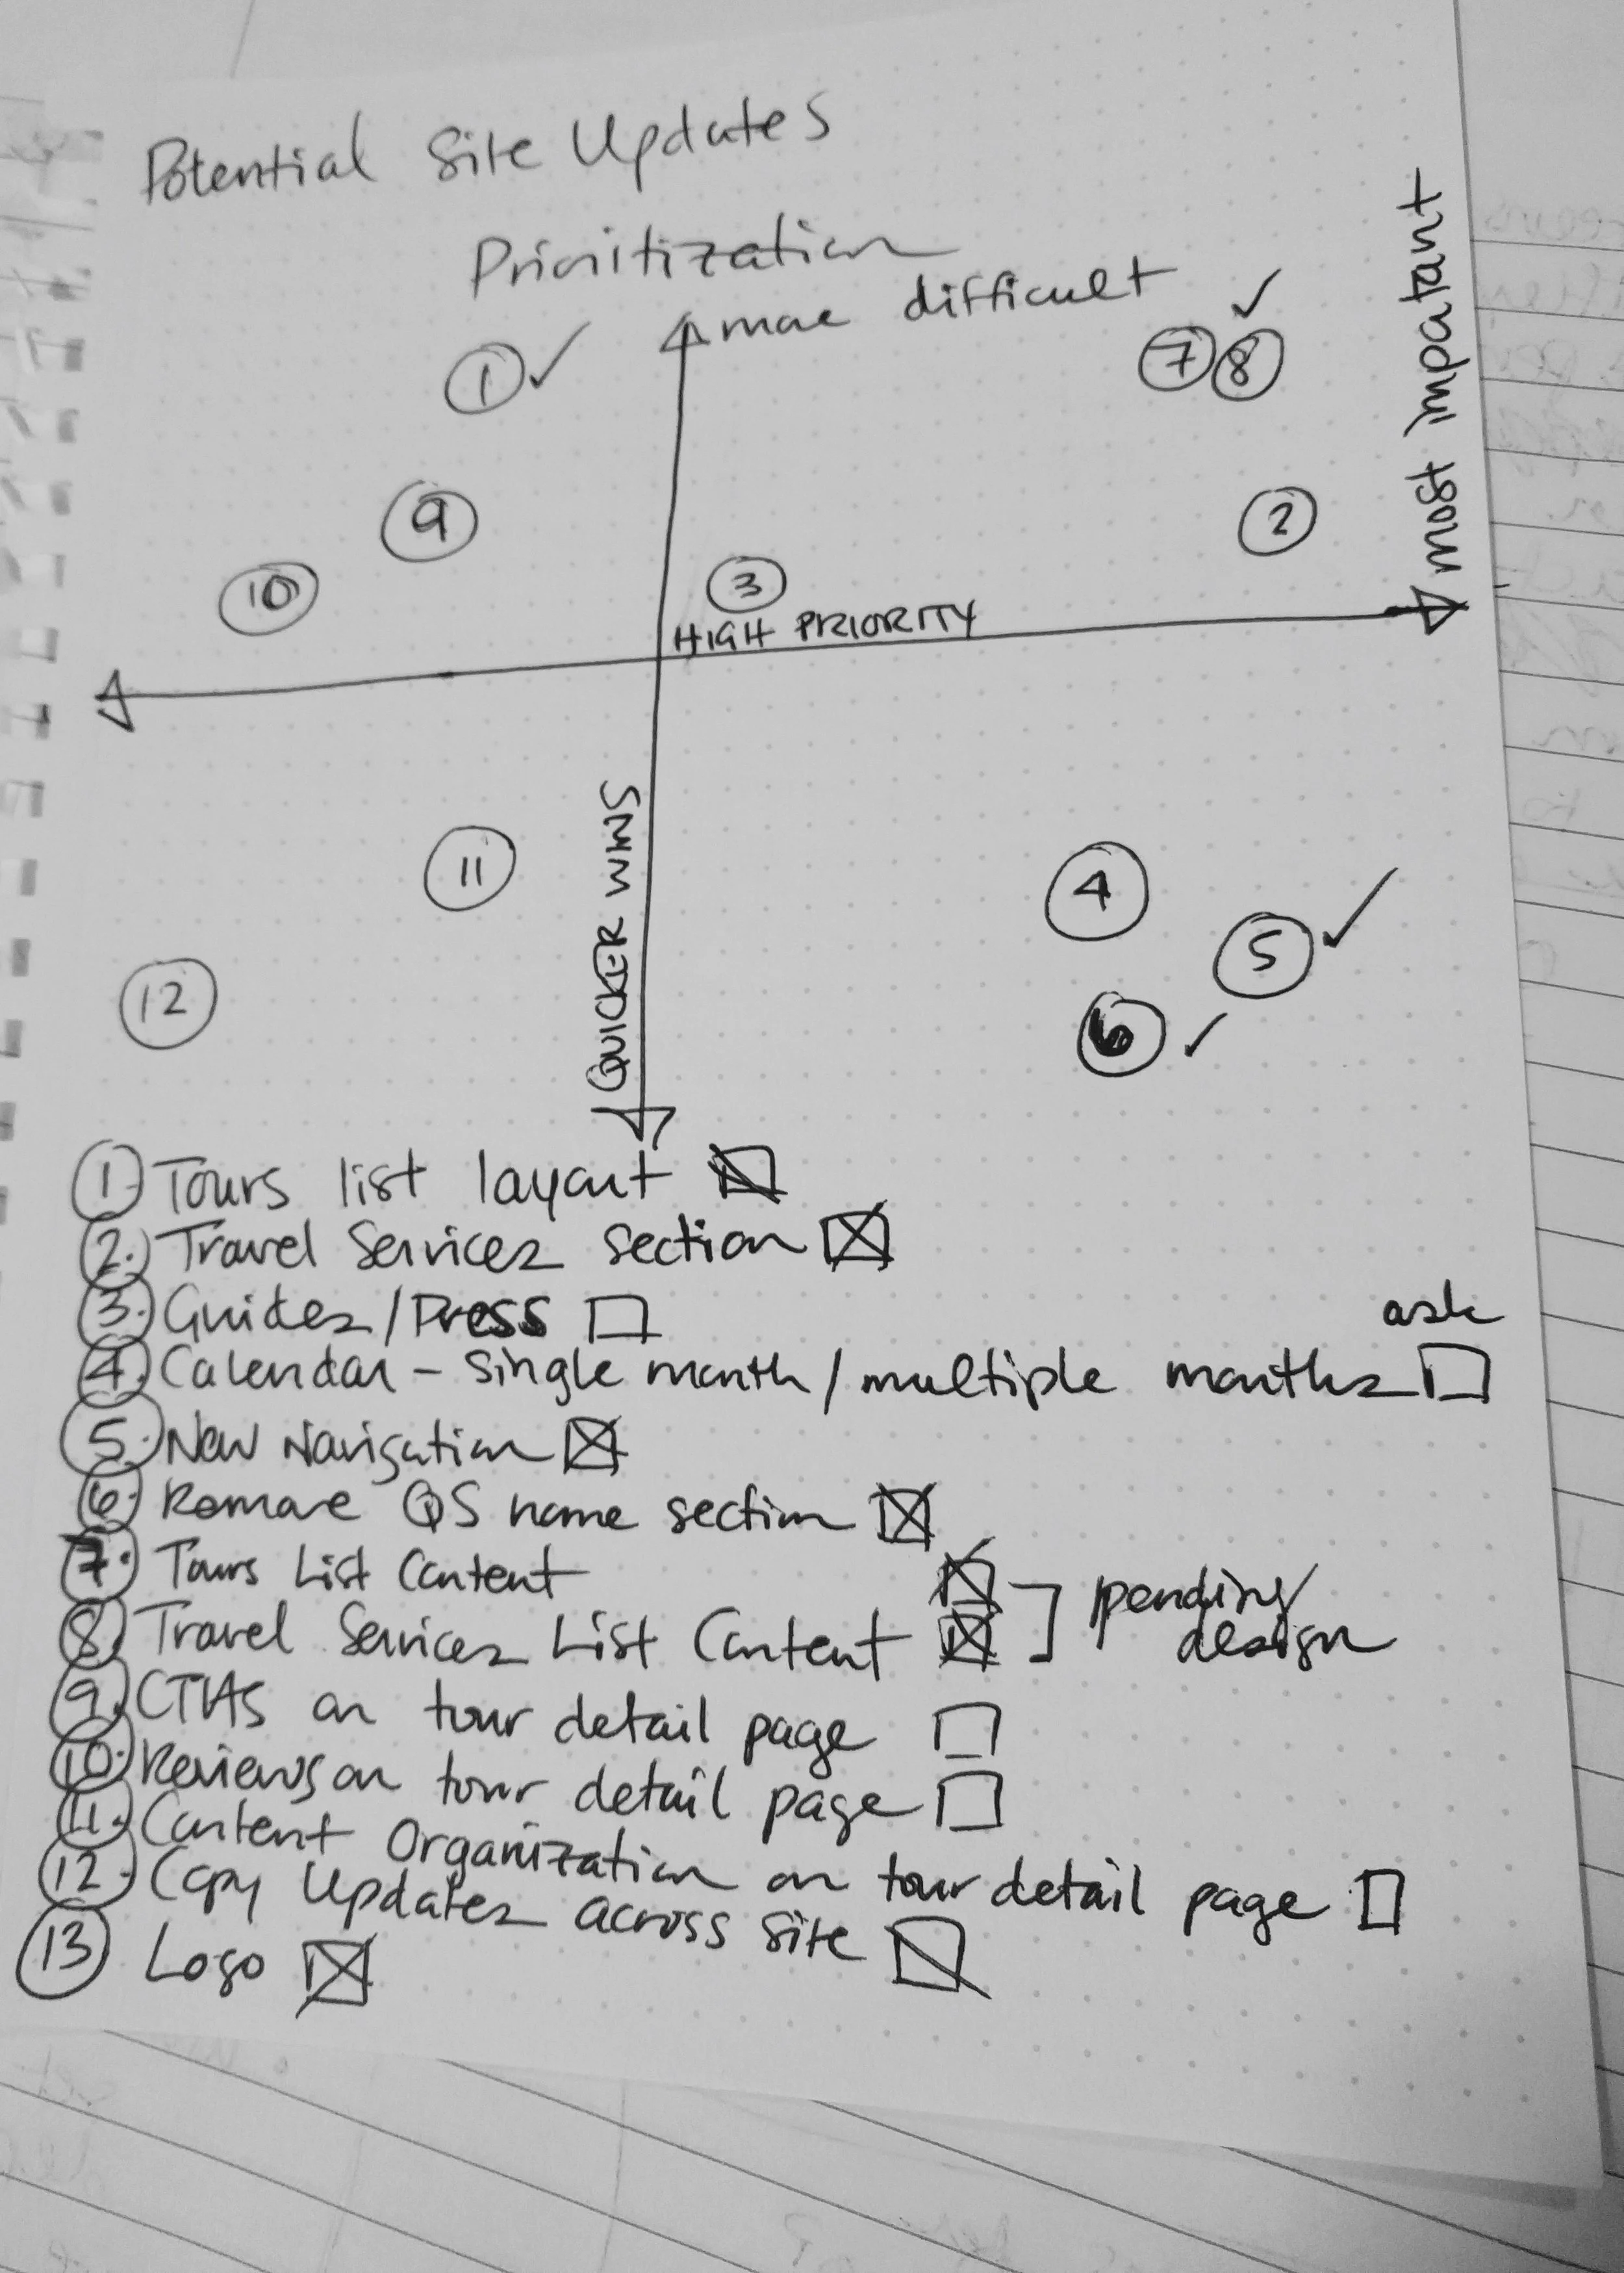 Potential Site Updates
Prioritization
more difficult
most important
1 ✓
7 8 ✓
9
2
10
3
HIGH PRIORITY
QUICKER WINS
11
4
5 ✓
12
6 ✓
1. Tours list layout ☒
2. Travel Services section ☒
3. Guides/Press ☐
ask
4. Calendar - single month/multiple months ☐
5. New Navigation ☒
6. Remove QS name section ☒
7. Tours List Content ☒
8. Travel Services List Content ☒
pending design
9. CTAs on tour detail page ☐
10. Reviews on tour detail page ☐
11. Content Organization on tour detail page ☐
12. Copy Updates across site ☒
13 Logo ☒